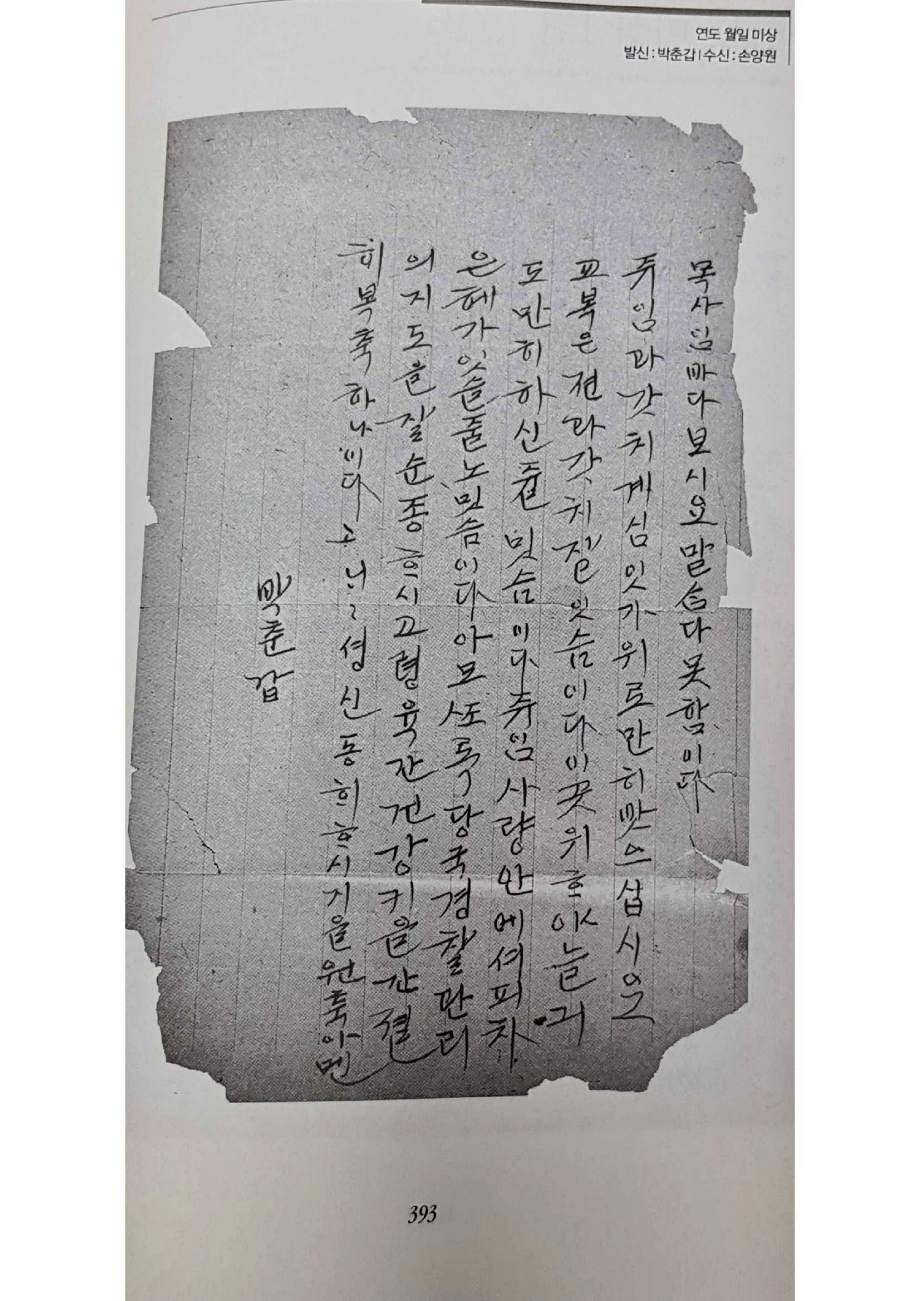 연도 월일 미상
발신 : 박춘갑 | 수신 : 손양원
목사임마다보시요말슴다못함니다
쥬임과갓치게심잇가위로만히맛으삽시오
교복은젼과갓치잘잇슴이다이곳위호야늘긔
도만히하신쥴밋슴이다쥬임사량안에셔피차
은혜가잇슬줄노밋슴이다아모쏘록당국경찰관리
의지도을잘순종흐시고령육간건강키을간졀
히복축하나이다
셩신동희흐시기을원축아멘
박춘갑
393